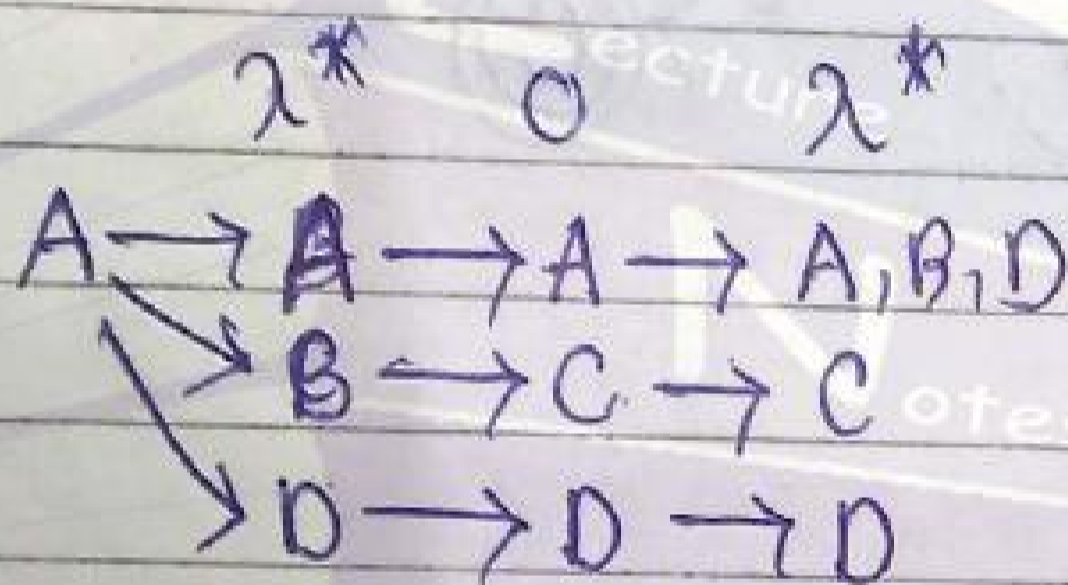 λ* 0 λ*
A → A → A → A, B, D
B → C → C
D → D → D
ecture
N
otes